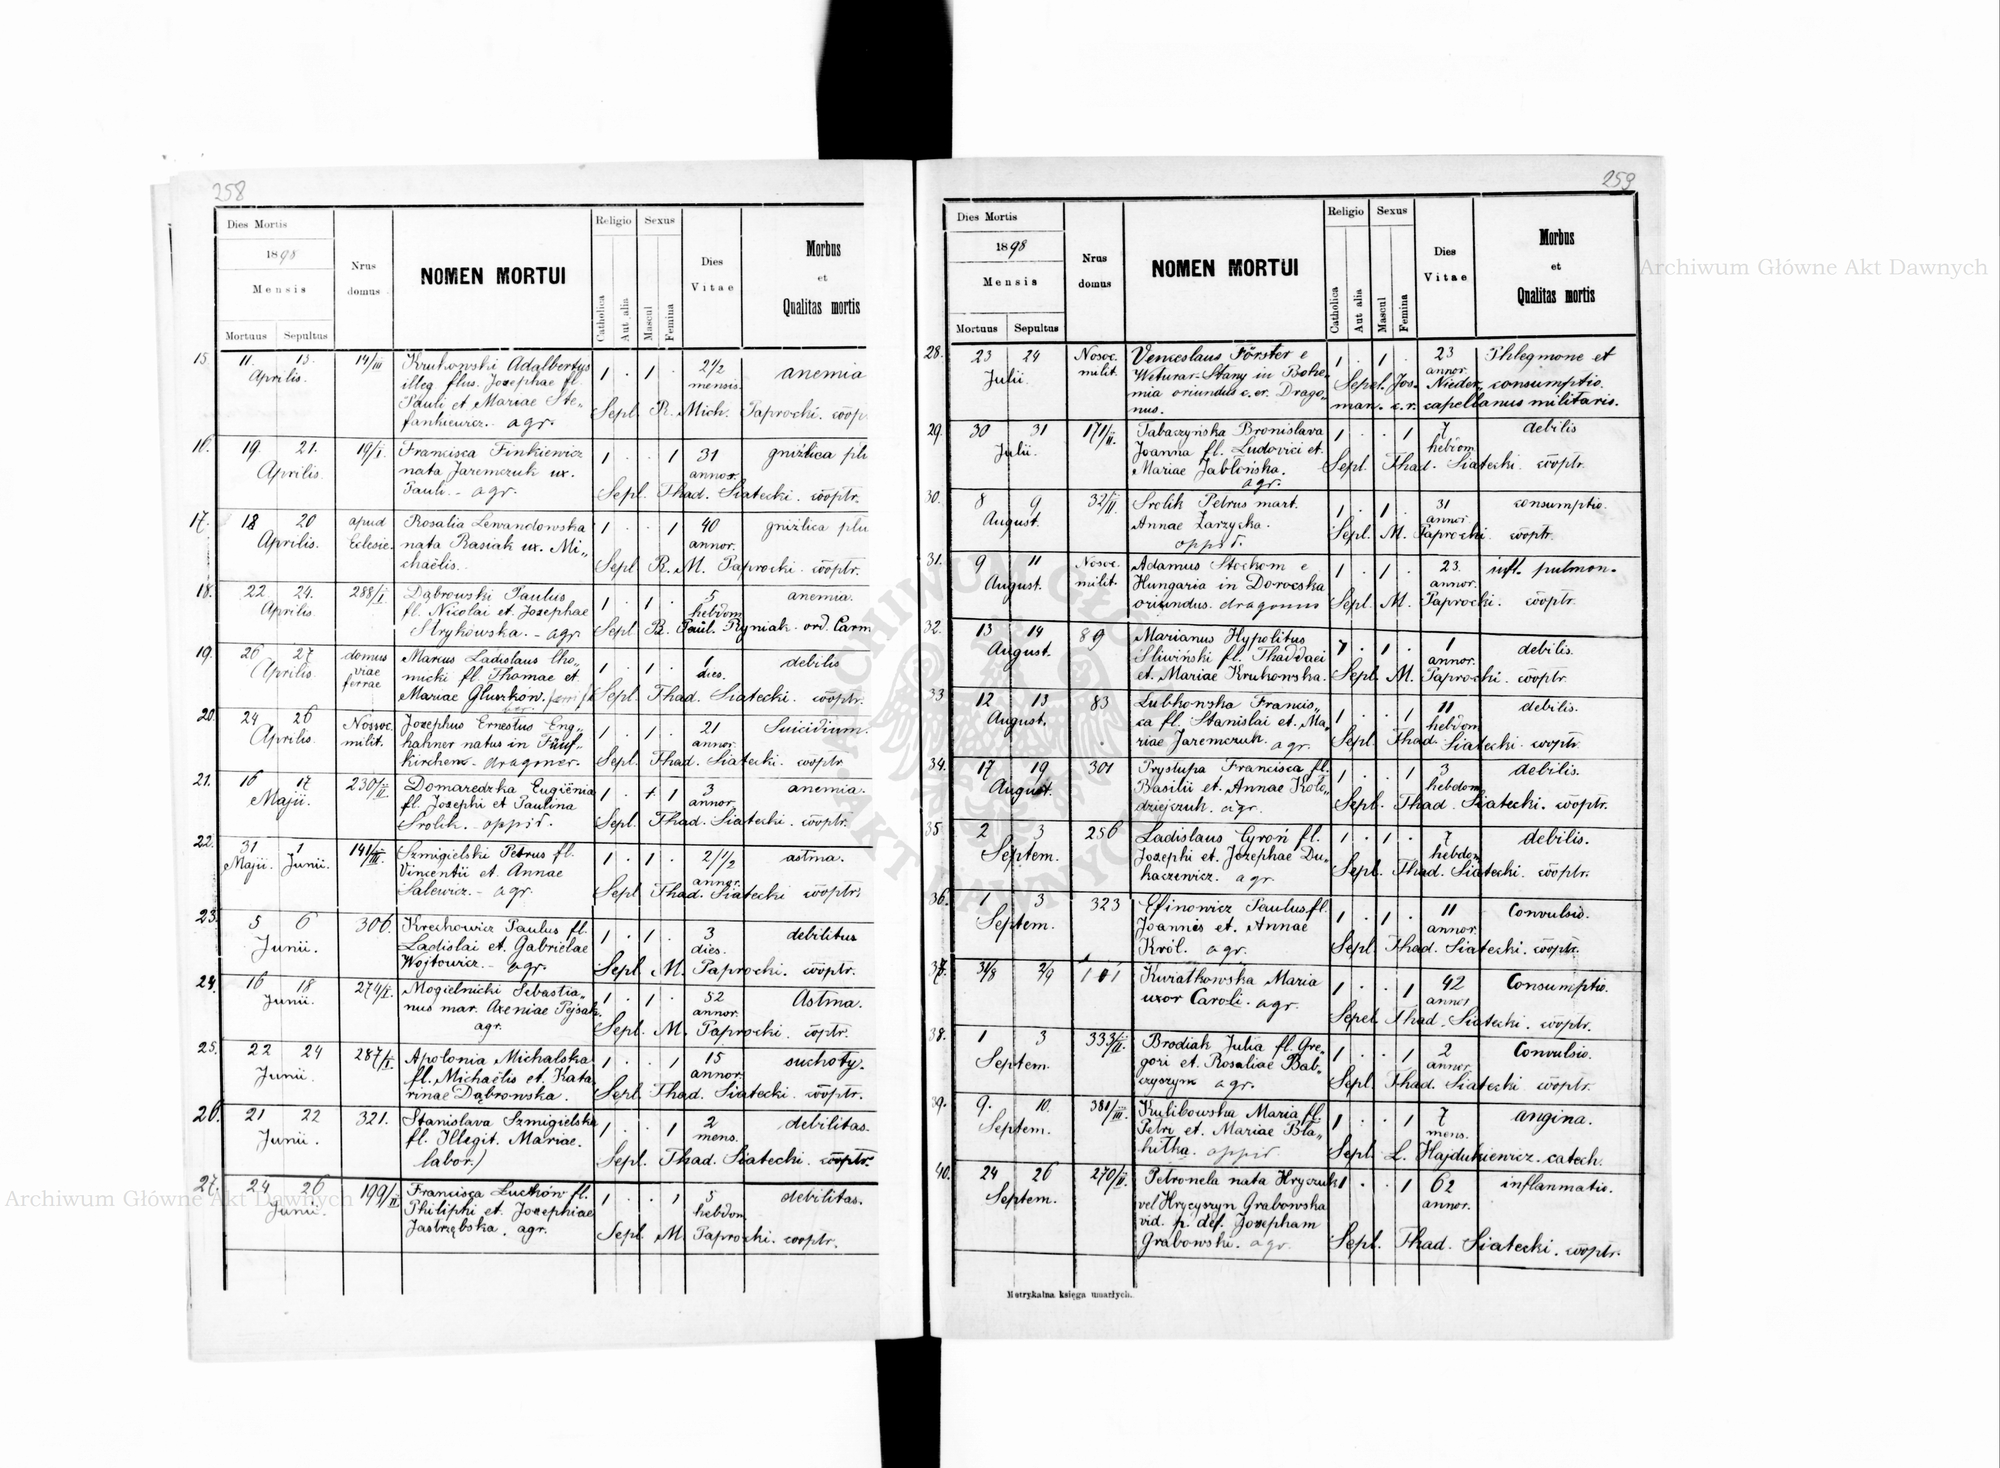 258
Dies Mortis
1898
Mensis
Mortuus Sepultus
Nrus
domus
NOMEN MORTUI
Religio
Catholica
Aut alia
Sexus
Mascul
Femina
Dies
Vitae
Morbus
et
Qualitas mortis
15 11. 13. 14/III Krukowski Adalbertus 1 . 1 . 2 1/2 anemia
Aprilis. illeg. flus. Josephae fl. mensis
Pauli et Mariae Ste„ Sepl. R. Mich. Paprocki. coop.
fankiewicz. agr.
16. 19. 21. 19/I. Francisca Finkiewicz 1 . . 1 31 gruźlica płu
Aprilis. nata Jaremczuk ux. annor.
Pauli. - agr. Sepl. Thad. Siatecki. cooptr.
17. 18 20 apud Rosalia Lewandowska 1 . . 1 40 gruźlica płu
Aprilis. Eclesie. nata Rasiak ux. Mi„ annor.
chaëlis. Sepl R. M. Paprocki. cooptr.
18. 22 24. 288/I Dąbrowski Paulus 1 . 1 . 5 anemia.
Aprilis. fl. Nicolai et. Josephae hebdom
Strykowska. - agr. Sepl R. Paul. Ryniak. ord. Carm
19. 26 27 domus Marcus Ladislaus Cho„ 1 . 1 . 1 debilis
Aprilis viae micki fl. Thomae et dies.
ferrae Mariae Sepl. Thad. Siatecki. cooptr.
20. 24 26 Nosoc. Josephus Ernestus Eng„ 1 . 1 . 21 Suicidium.
Aprilis milit. kahner natus in Fünf„ annor.
kirchen - dragoner. Sepl. Thad. Siatecki. cooptr
21. 16 17 230/II Domaredzka Eugiënia 1 . + 1 3 anemia.
Maji. fl. Josephi et Paulina annor.
Srolik. - oppid. Sepl. Thad. Siatecki. cooptr.
22. 31 1 141/III. Szmigielski Petrus fl. 1 . 1 . 2/1/2 astma.
Maji. Junii. Vincentii et. Annae annor.
Salewicz. - agr. Sepl. Thad. Siatecki cooptr.
23. 5 6 306. Krechowicz Paulus fl. 1 . 1 . 3 debilitus
Junii. Ladislai et. Gabrielae dies.
Wojtowicz. - agr. Sepl. M. Paprocki. cooptr.
24. 16 18 274/I. Mogielnicki Sebastia„ 1 . 1 . 52 Astma.
Junii. nus mar. Axeniae Pejsak. annor.
agr. Sepl. M. Paprocki. coptr.
25. 22 24 287/I. Apolonia Michalska 1 . . 1 15 suchoty.
Junii. fl. Michaëlis et. Kata annor.
rinae Dąbrowska. Sepl. Thad. Siatecki. cooptr.
26. 21 22 321. Stanislava Szmigielska 1 . . 1 2 debilitas.
Junii. fl. Illegit. Mariae. mens.
labor.) Sepl. Thad. Siatecki. cooptr.
27. 24 26 199/II Francisca Luckłów fl. 1 . . 1 5 debilitas.
Junii. Philiphi et. Josephiae hebdom
Jastrzębska. agr. Sepl. M Paprocki. cooptr.
259
Dies Mortis
1898
Mensis
Mortuus Sepultus
Nrus
domus
NOMEN MORTUI
Religio
Catholica
Aut alia
Sexus
Mascul
Femina
Dies
Vitae
Morbus
et
Qualitas mortis
28. 23 24 Nosoc. Venceslaus Förster e 1 . 1 . 23 Phlegmone et
Julii. milit. in Bohe„ Sepel. Jos. annor. Nieder„ consumptio.
mia oriundus c. er. Drago„ man. c.r. capellanus militaris.
nus.
29. 30 31 171/II. Tabaczyńska Bronislava 1 . . 1 7 debilis
Julii. Joanna fl. Ludovici et. hebdom
Mariae Jabłońska. Sepl. Thad. Siatecki. cooptr.
agr.
30. 8 9 32/II. Srolik Petrus mart. 1 . 1 . 31 consumptio.
August. Annae Zarzycka. annor.
oppid. Sepl. M. Paprocki. cooptr.
31. 9 11 Nosoc. Adamus Stockom e 1 . 1 . 23. infl. pulmon.
August. milit. Hungaria in Dorocska annor.
oriundus. dragonus Sepl. M. Paprocki. cooptr.
32. 13 14 89 Marianus Hypolitus 1 . 1 . 1 debilis.
August. Śliwiński fl. Thaddaei annor.
et. Mariae Krukowska. Sepl. M. Paprocki. cooptr.
33 12 13 83 Lubkowska Francis„ 1 . . 1 11 debilis.
August. ca fl. Stanislai et. Ma„ hebdom
riae Jaremczuk. agr. Sepl. Thad. Siatecki. cooptr.
34. 17 19 301 Prystupa Francisca fl. 1 . . 1 3 debilis.
August. Basilii et. Annae Koło„ hebdom
dziejczuk. agr. Sepl. Thad. Siatecki. cooptr.
35. 2 3 256 Ladislaus Cyroń fl. 1 . 1 . 7 debilis.
Septem. Josephi et. Josephae Du„ hebdom
kaczewicz. agr. Sepl. Thad. Siatecki. cooptr.
36. 1 3 323 Efinowicz Paulus fl. 1 . 1 . 11 Convulsio.
Septem. Joannes et. Annae annor.
Król. agr. Sepl. Thad. Siatecki. cooptr.
37. 31/8 2/9 101 Kwiatkowska Maria 1 . . 1 42 Consumptio.
uxor Caroli. agr. annor
Sepel. Thad. Siatecki. cooptr.
38. 1 3 333/II. Brodiak Julia fl. Gre„ 1 . . 1 2 Convulsio.
Septem. gori et. Rosaliae Bab„ annor.
czyszyn agr. Sepl. Thad. Siatecki cooptr.
39. 9. 10. 381/III. Kulibowska Maria fl. 1 . . 1 7 angina.
Septem. Petri et. Mariae Bla„ mens.
kitka. oppid Sepl. L. Hajdukiewicz. catech.
40. 24 26 270/II. Petronela nata Hryczuk 1 . . 1 62 inflanmatio.
Septem. vel Hrycyszyn Grabowska annor.
vid. p. def. Josepham
Grabowski. agr. Sepl. Thad. Siatecki. cooptr.
Metrykalna księga umarłych.
Archiwum Główne Akt Dawnych
Archiwum Główne Akt Dawnych
ARCHIWUM GŁÓWNE AKT DAWNYCH